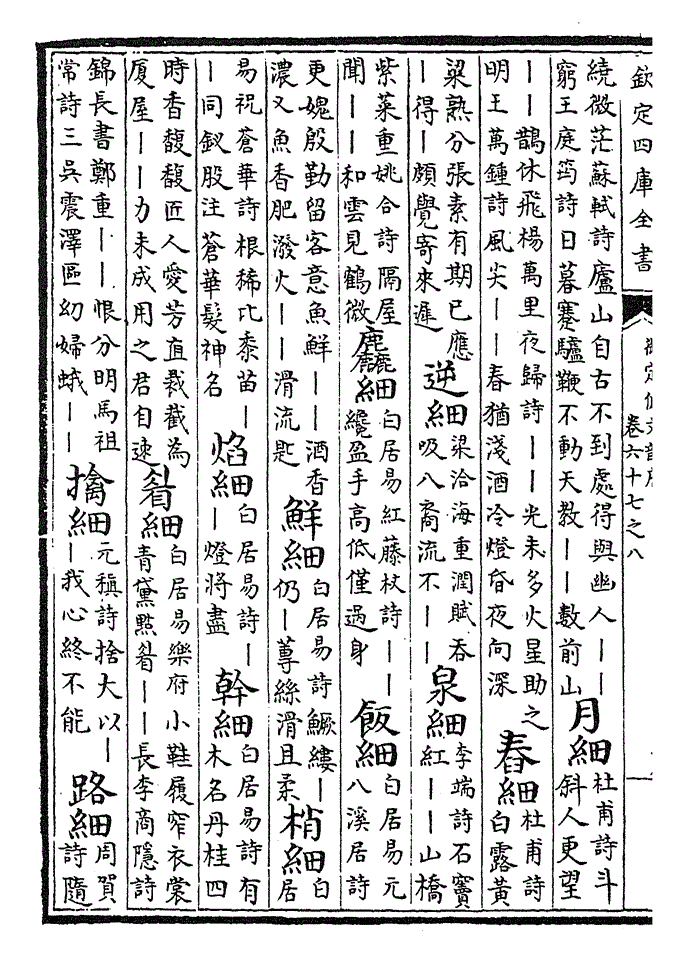 欽定四庫全書
御定佩文韻府
卷六十七之八
繞微茫蘇軾詩廬山自古不到處得與幽人——
窮王庭筠詩日暮蹇驢鞭不動天教——數前山
月細
杜甫詩斗
斜人更望
——鵲休飛楊萬里夜歸詩——光未多火星助之
明王萬鍾詩風尖——春猶淺酒冷燈昏夜向深
舂細
杜甫詩
白露黃
粱熟分張素有期已應
—得—頗覺寄來遲
逆細
梁洽海重潤賦吞
吸八裔流不——
泉細
李端詩石竇
紅——山橋
紫菜重姚合詩隔屋
聞——和雲見鶴微
麤細
白居易紅藤杖詩——
纔盈手高低僅過身
飯細
白居易元
八溪居詩
更媿殷勤留客意魚鮮——酒香
濃又魚香肥潑火——滑流匙
鮮細
白居易詩鱖縷—
仍—蓴絲滑且柔
梢細
白
居
易祝蒼華詩根稀比黍苗—
—同釵股注蒼華髮神名
焰細
白居易詩—
—燈將盡
幹細
白居易詩有
木名丹桂四
時香馥馥匠人愛芳直裁截為
厦屋——力未成用之君自速
眉細
白居易樂府小鞋履窄衣裳
青黛點眉——長李商隱詩
錦長書鄭重——恨分明馬祖
常詩三吳震澤區幼婦蛾——
擒細
元稹詩捨大以—
—我心終不能
路細
周賀
詩隨